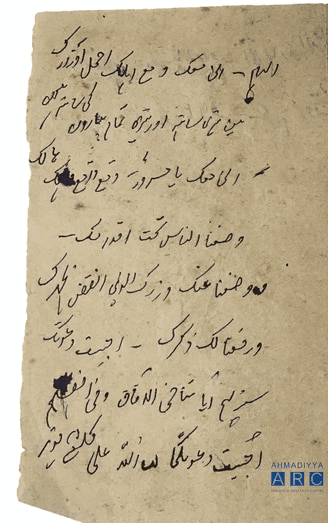 الہام – انی معک و مع اہلک احمل اوزارک
میں تیرے ساتھ اور تیرے تمام پیاروں کے ساتھ ہوں
انی معک یا مسرور وقع واقع ہالک
وضعنا الناس تحت اقدامک –
و وضعنا عنک وزرک الذی انقض ظہرک
ورفعنا لک ذکرک – اجیبت دعوتک
سنریہم آیاتنا فی الآفاق وفی انفسہم
اجیبت دعوتکما ان اللہ علی کل شیء قدیر
AHMADIYYA
ARC